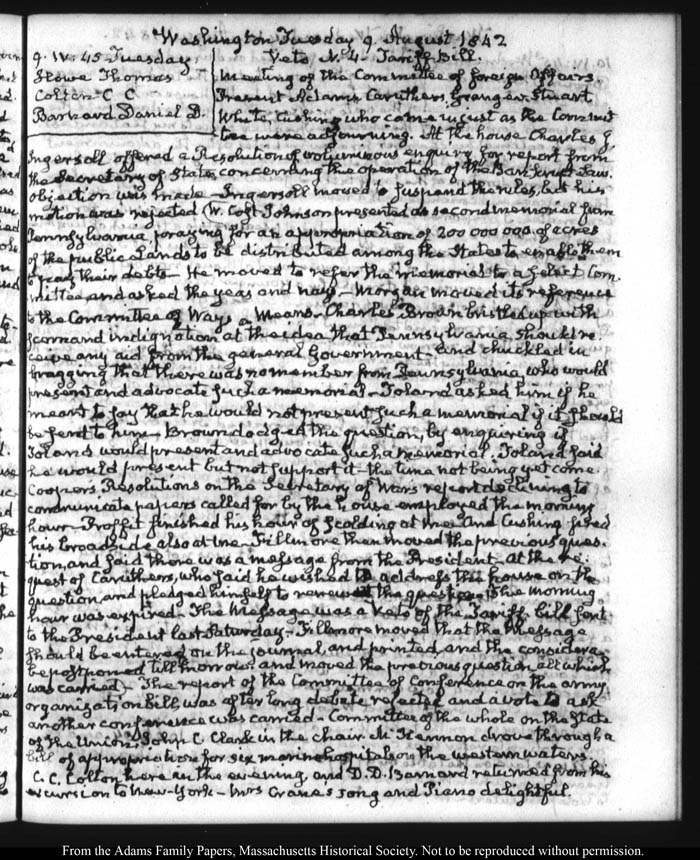 Washington Tuesday 9. August 1842
9. IV: 45 Tuesday. Veto, N. 4. Tariff Bill.
Howe Thomas Meeting of the Committee of foreign Affairs.
Colton C C Present Adams, Caruthers, Granger, Stuart
Barnard Daniel D. White, Cushing who came in just as the Commit
tee were adjourning. At the house Charles J.
Ingersoll offered a Resolution of voluminous enquiry for report from
the Secretary of State, concerning the operation of the Bankrupt Law.
objection was made— Ingersoll moved to suspend the rules, but his
motion was rejected. W. Cost Johnson presented a second memorial from
Pennsylvania, praying for an appropriation of 200 000 000. of acres
of the public Lands to be distributed among the States to enable them
to pay their debts— He moved to refer the memorial to a select Com.
mittee, and asked the yeas and nays— Morgan moved its reference
to the Committee of Ways and Means— Charles Brown bristled up with
scorn and indignation at the idea that Pennsylvania should re
ceive any aid from the general Government— and chuckled in
bragging that there was no member from Pennsylvania who would
present and advocate such a memorial— Toland asked him if he
meant to say that he would not present such a memorial if it should
be sent to him— Brown dodged the question, by enquiring if
Toland would present and advocate such a memorial. Toland said
he would present but not support it— the time not being yet come.
Cooper's Resolutions on the Secretary of War's report declining to
communicate papers called for by the house employed the morning
hour— Proffit finished his hour of scolding at me— And Cushing fired
his broadside also at me— Fillmore then moved the previous ques.
tion, and said there was a message from the President— at the re.
quest of Caruthers, who said he wished to address the house on the
question and pledged himself to renew the question. The morning
hour was expired— The Message was a Veto of the Tariff bill sent
to the President last Saturday— Fillmore moved that the Message
should be entered on the journal, and printed, and the considera.
be postponed till morrow: and moved the previous question all which
was carried— The report of the Committee of Conference on the army
organization bill, was after long debate rejected and a vote to ask
another conference was carried— Committee of the whole on the State
of the Union, John C. Clark in the chair. McKennon drove through a
bill of appropriations for six marine hospitals on the western waters.
C. C. Colton here in the evening, and D. D. Barnard returned from his
excursion to New-York— Mrs Crane's song and Piano delightful.
From the Adams Family Papers, Massachusetts Historical Society. Not to be reproduced without permission.